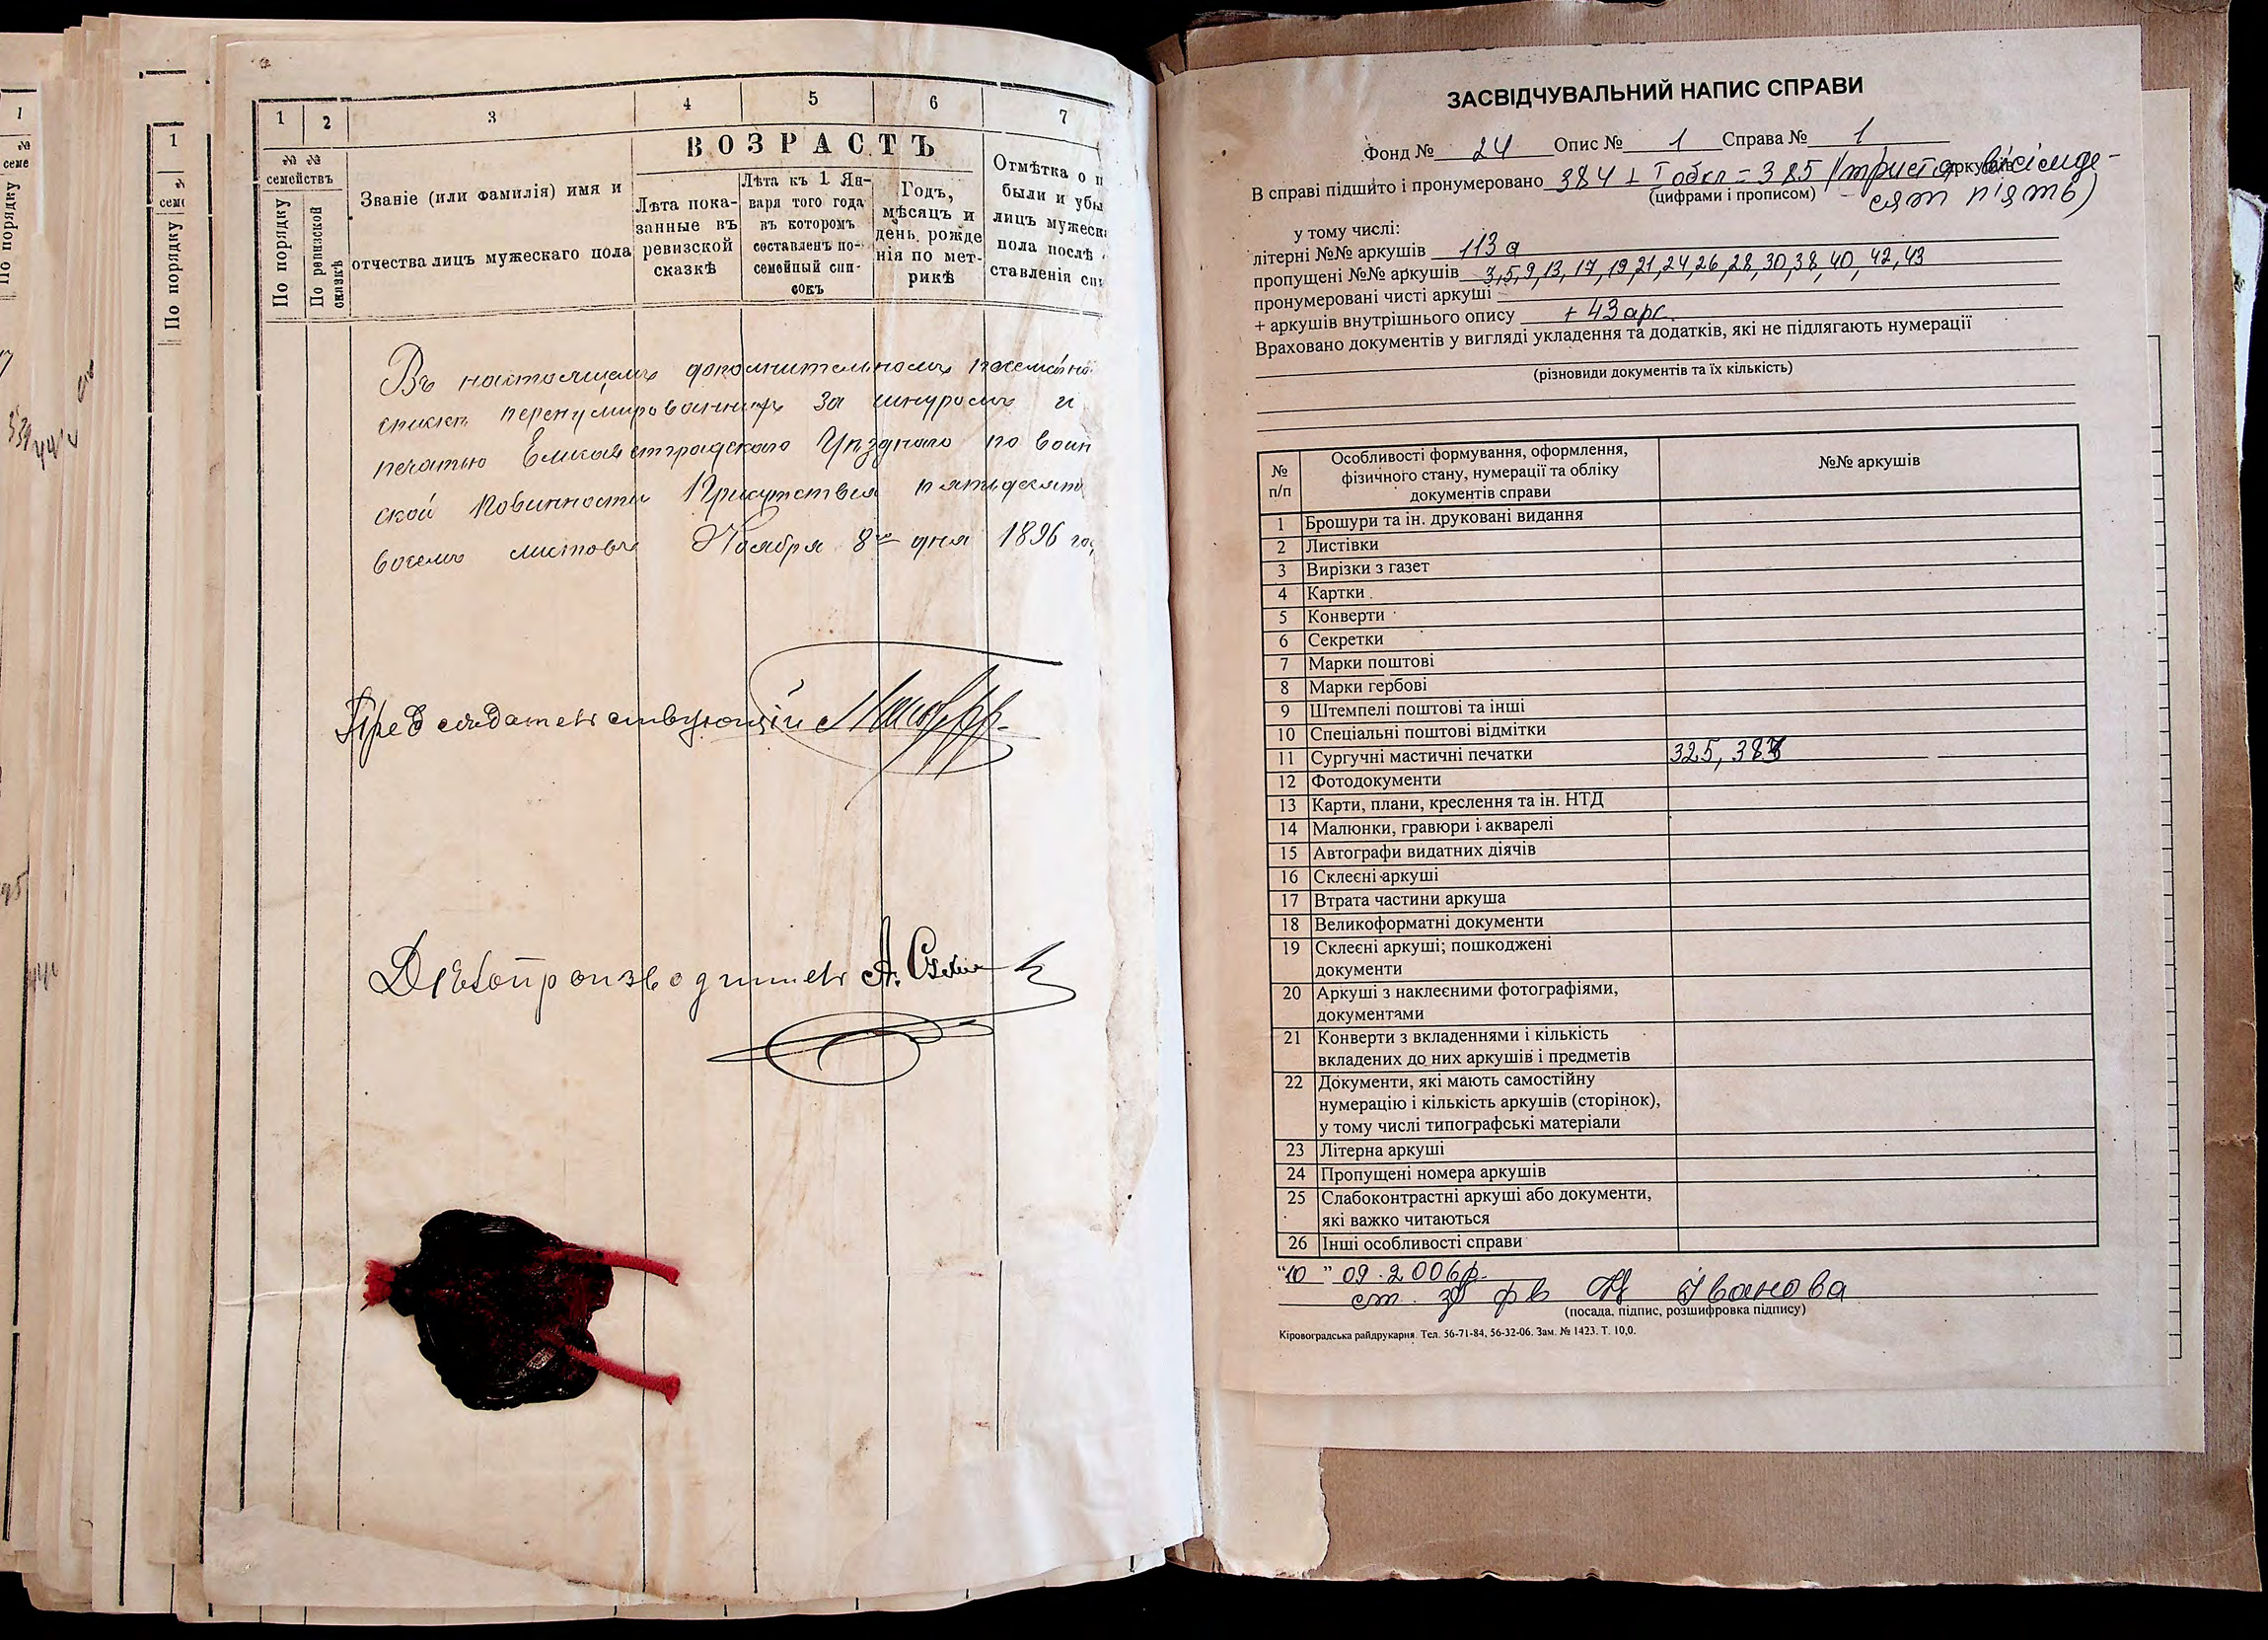 1
2
3
4
5
6
7
№ №
семействъ
По порядку
По ревизской
сказкѣ
Званіе (или фамилія) имя и
отчества лицъ мужескаго пола
ВОЗРАСТЪ
Лѣта пока-
занные въ
ревизской
сказкѣ
Лѣта къ 1 Ян-
варя того года
въ которомъ
составленъ по-
семейный спи-
сокъ
Годъ,
мѣсяцъ и
день рожде
нія по мет-
рикѣ
Отмѣтка о п
были и убы
лицъ мужеск
пола послѣ
ставленія спи
Въ настоящемъ дополнительномъ посемейно
спискѣ перенумированныхъ за шнуромъ и
печатью Елисаветградскаго Уѣзднаго по воин
ской повинности Присутствія пятьдесятъ
восемь листовъ Ноября 8го дня 1896 го
Предсѣдательствующій
Дѣлопроизводитель А.
1
№
семе
По порядку
1
семе
По порядку
ЗАСВІДЧУВАЛЬНИЙ НАПИС СПРАВИ
Фонд № 24 Опис № 1 Справа № 1
В справі підшито і пронумеровано 384 + 1 обкл = 385 (триста вісімде- аркушів
(цифрами і прописом) - сят п'ять)
у тому числі:
літерні №№ аркушів 113а
пропущені №№ аркушів 3,5,9,13,17,19,21,24,26,28,30,38,40,42,43
пронумеровані чисті аркуші -
+ аркушів внутрішнього опису + 43 арк.
Враховано документів у вигляді укладення та додатків, які не підлягають нумерації
(різновиди документів та їх кількість)
№ п/п Особливості формування, оформлення, фізичного стану, нумерації та обліку документів справи №№ аркушів
1 Брошури та ін. друковані видання
2 Листівки
3 Вирізки з газет
4 Картки
5 Конверти
6 Секретки
7 Марки поштові
8 Марки гербові
9 Штемпелі поштові та інші
10 Спеціальні поштові відмітки
11 Сургучні мастичні печатки 325,
12 Фотодокументи
13 Карти, плани, креслення та ін. НТД
14 Малюнки, гравюри і акварелі
15 Автографи видатних діячів
16 Склеєні аркуші
17 Втрата частини аркуша
18 Великоформатні документи
19 Склеєні аркуші; пошкоджені
документи
20 Аркуші з наклеєними фотографіями,
документами
21 Конверти з вкладеннями і кількість
вкладених до них аркушів і предметів
22 Документи, які мають самостійну
нумерацію і кількість аркушів (сторінок),
у тому числі типографські матеріали
23 Літерна аркуші
24 Пропущені номера аркушів
25 Слабоконтрастні аркуші або документи,
які важко читаються
26 Інші особливості справи
"10" 09.2006р.
ст. зб ф Іванова
(посада, підпис, розшифровка підпису)
Кіровоградська райдрукарня. Тел. 56-71-84, 56-32-06. Зам. № 1423. Т. 10,0.